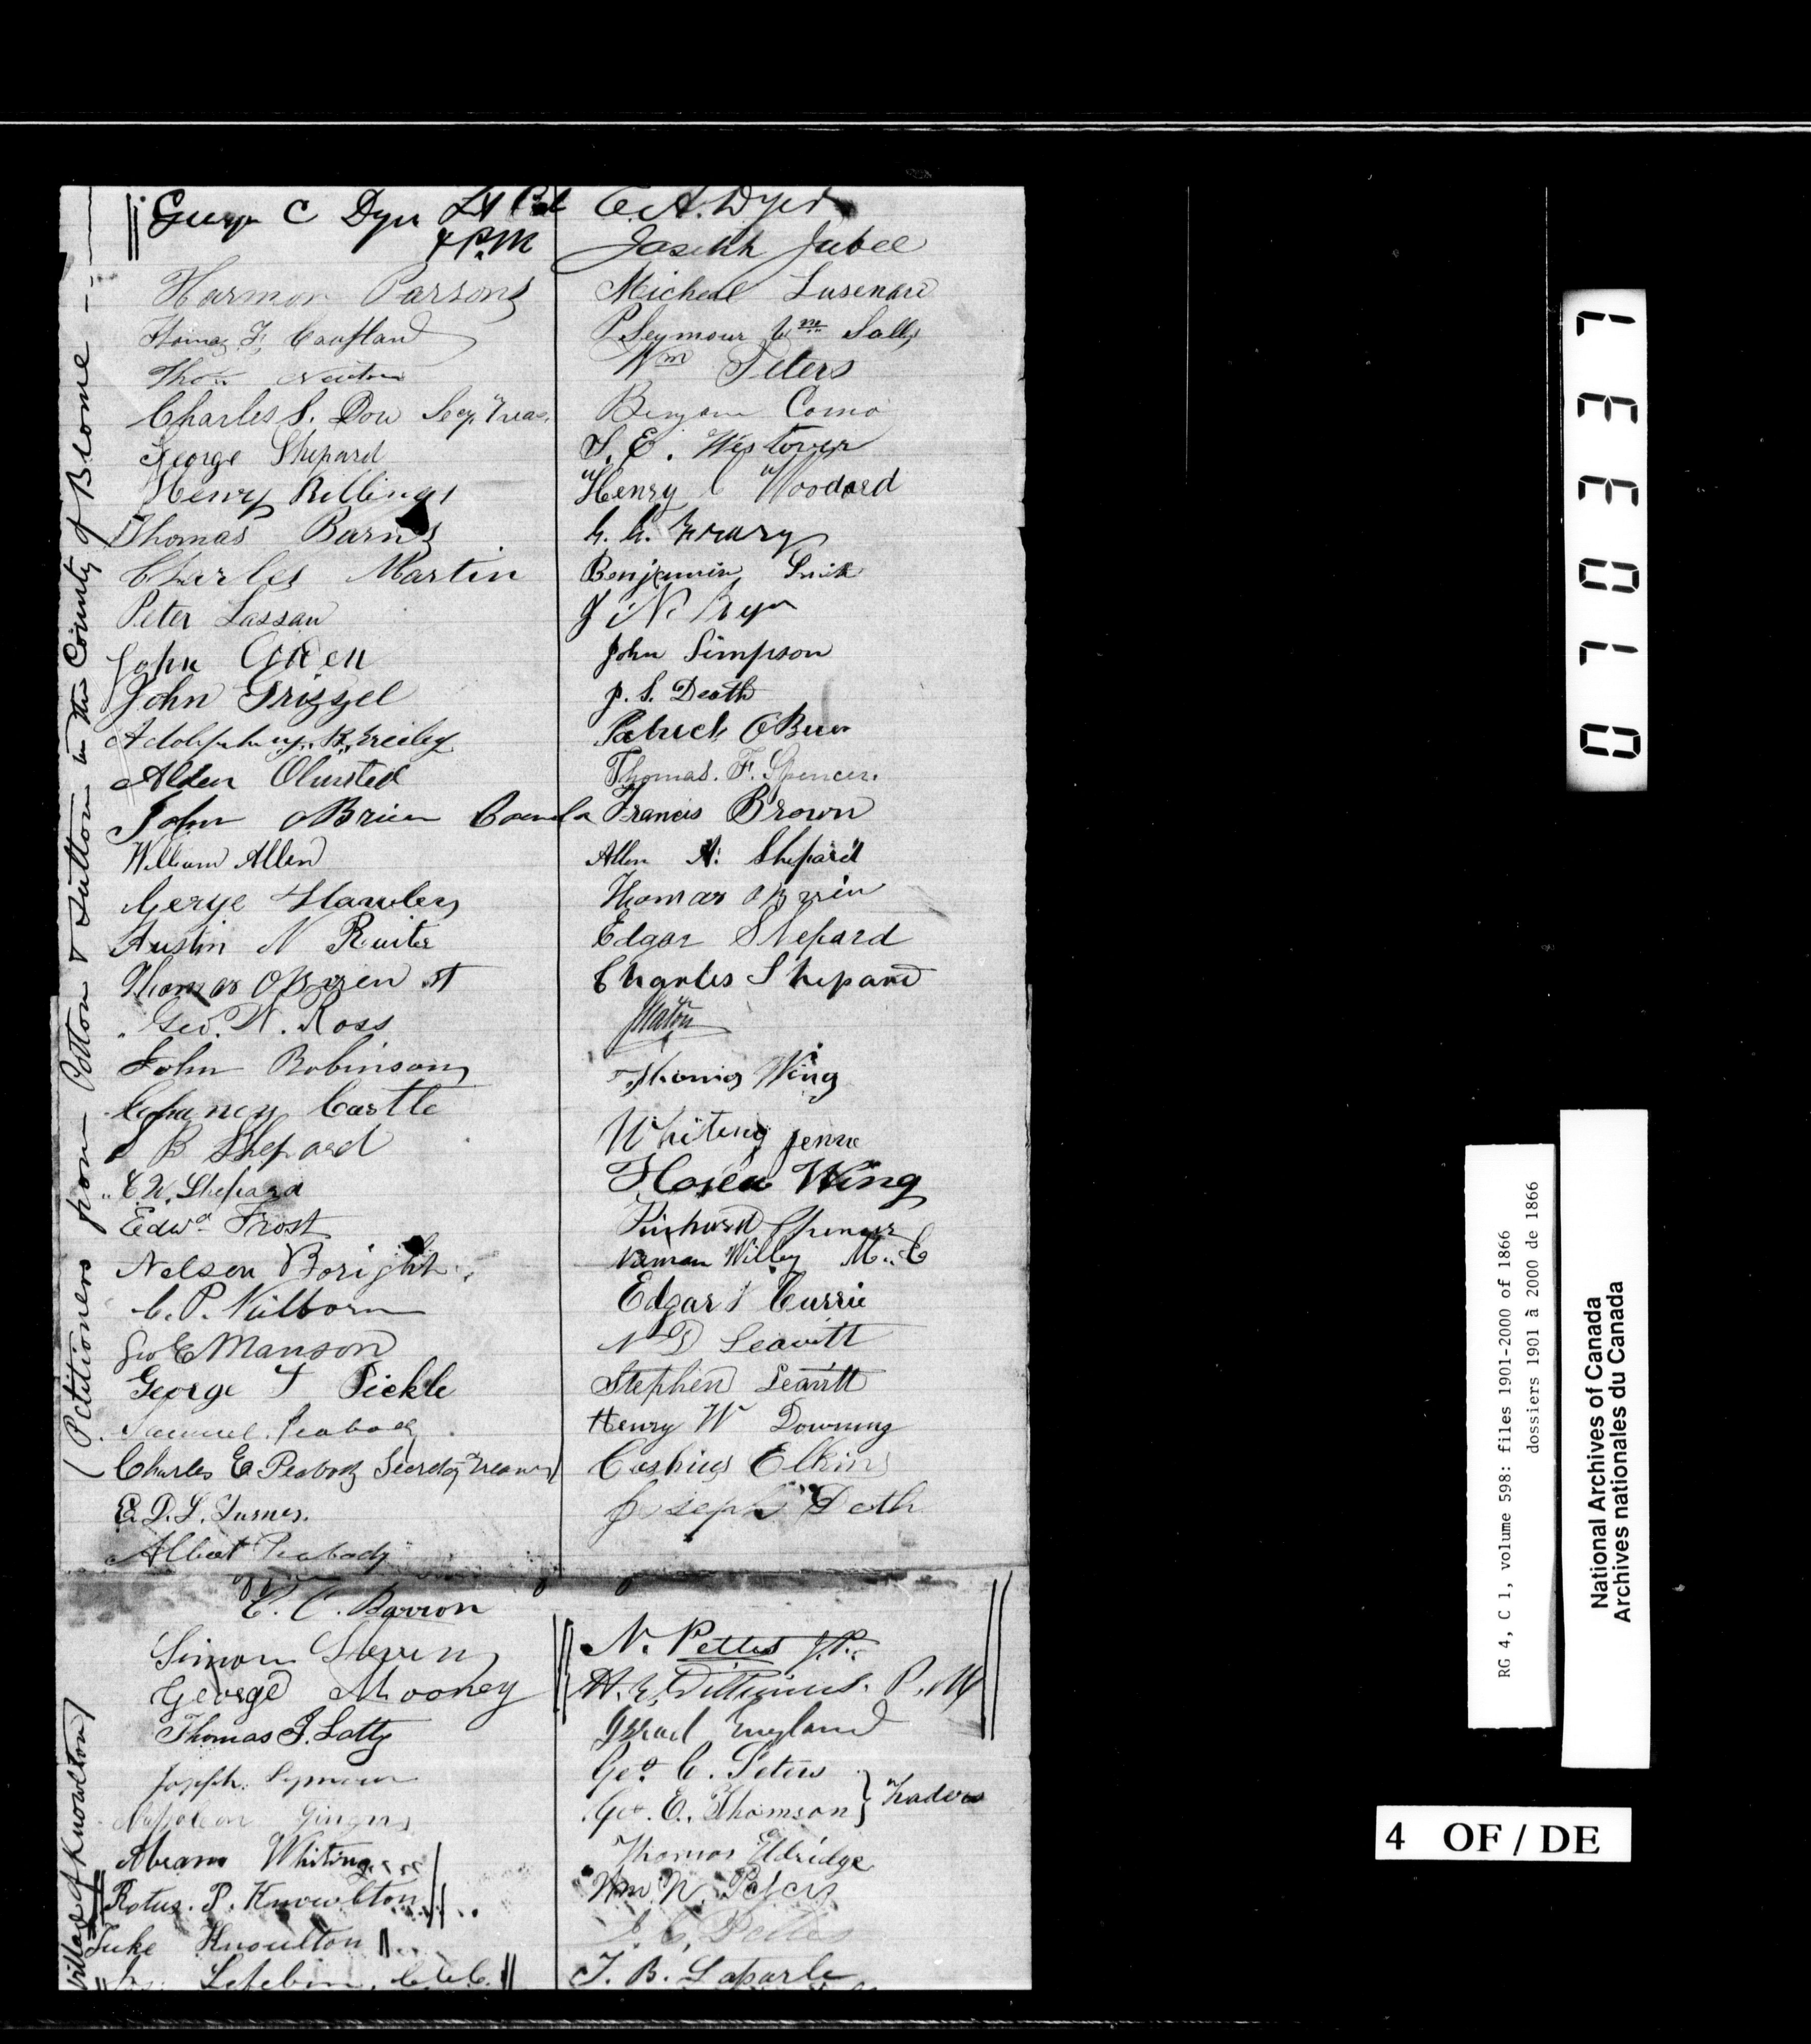 (Petitioners from Potton & Sutton in the County of Brome
George C Dyer Lt Col
& P.M
Harmon Parsons
Thos Newton
Charles S. Dow Secy. Treas.
George Shepard
Henry Billings
Thomas Barnes
Charles Martin
Peter Lassau
John
John Frizzel
Adolphus
Alden Olmsted
John OBrien
William Allen
George Hawley
Austin N Ruiter
Thomas OBrien st
Geo. W. Ross
John Robinson
Chancy Castle
S B Shepard
E W. Shepard
Edwd Frost
Nelson Boright
C. P. Kilborn
Geo E Manson
George F Pickle
Samuel Peabody
Charles E Peabody Secretary Treasurer
E. D. L. Turner.
Albert Peabody
E. A. Dyer
Joseph Jubee
Micheal
P Seymour
Wm Peters
Como
S. E. Westover
Henry C Woodard
Frary
Benjamin Smith
John Simpson
J. S. Death
Patrick OBrien
Thomas. F. Spencer.
Francis Brown
Allen N. Shepard
Thomas OBrien
Edgar Shepard
Charles Shepard
Thomas Wing
Whiting Jenne
Hosea Wing
Spencer
Willey M. C
Edgar Currie
N D Leavitt
Stephen Leavitt
Henry W Downing
Cashius Elkins
Joseph Deth
Village of Knowlton)
E. C. Barron
Simon
George Mooney
Thomas J. Latty
Joseph Seymour
Napoleon Gingras
Abram Whiting
Rotus. P. Knowlton
Luke Knowlton
Lefebvre
N. Pettes J.P.
H. E. Williams. P. M
Israel England
Geo C. Peters
Geo. E. Thomson } Traders
Thomas Eldridge
Wm N.
J. C. Pettes
J. B. Laparle
071033 7
RG 4, C 1, volume 598: files 1901-2000 of 1866
dossiers 1901 à 2000 de 1866
National Archives of Canada
Archives nationales du Canada
4 OF / DE